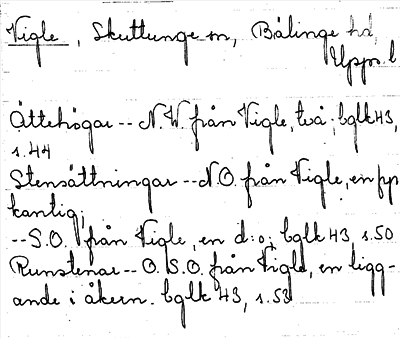 Vigle, Skuttunge sn, Bälinge hd,
Upps. l
Ättehögar -- N.W från Vigle, två; bglk 43,
s. 44
Stensättningar -- N.O. från Vigle, en fyr
kantig;
-- S.O. från Vigle, en d:o; bglk 43, s. 50
Runstenar -- O.S.O. från Vigle, en ligg-
ande i åkern. bglk 43, s. 53